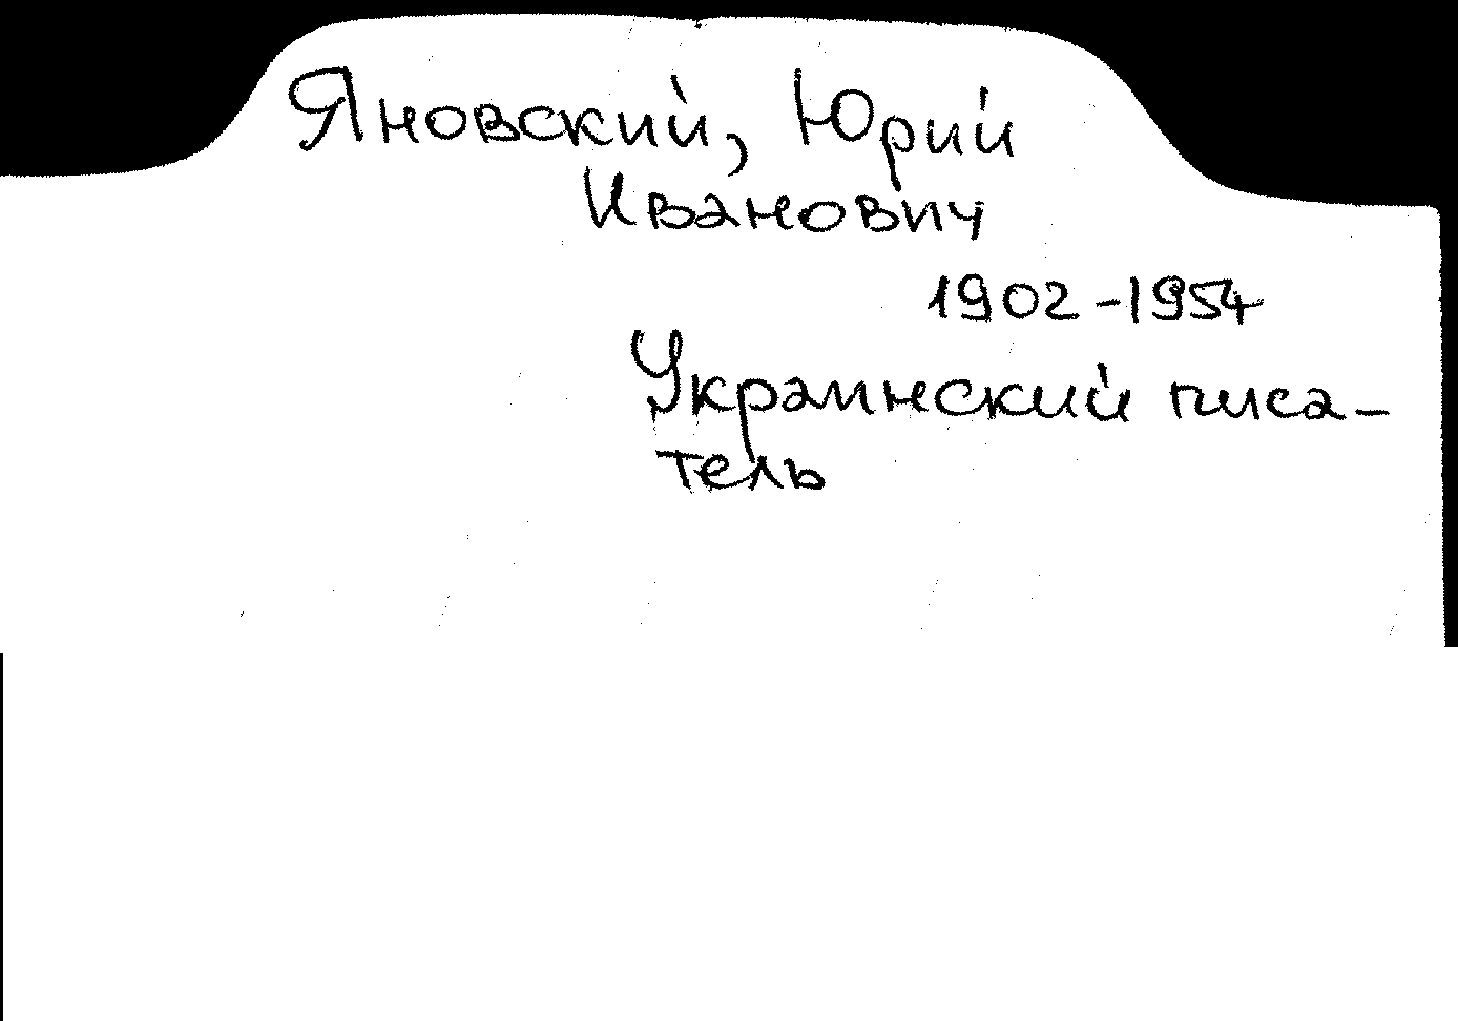 Яновский, Юрий
Иванович
1902-1954
Украинский писа-
тель